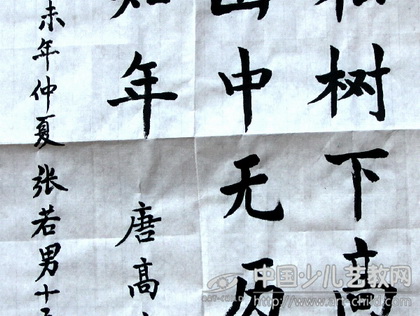 松树下高
山中无历
知年
唐高
未年仲夏张若男十
中国少儿艺教网
www.art-child.com